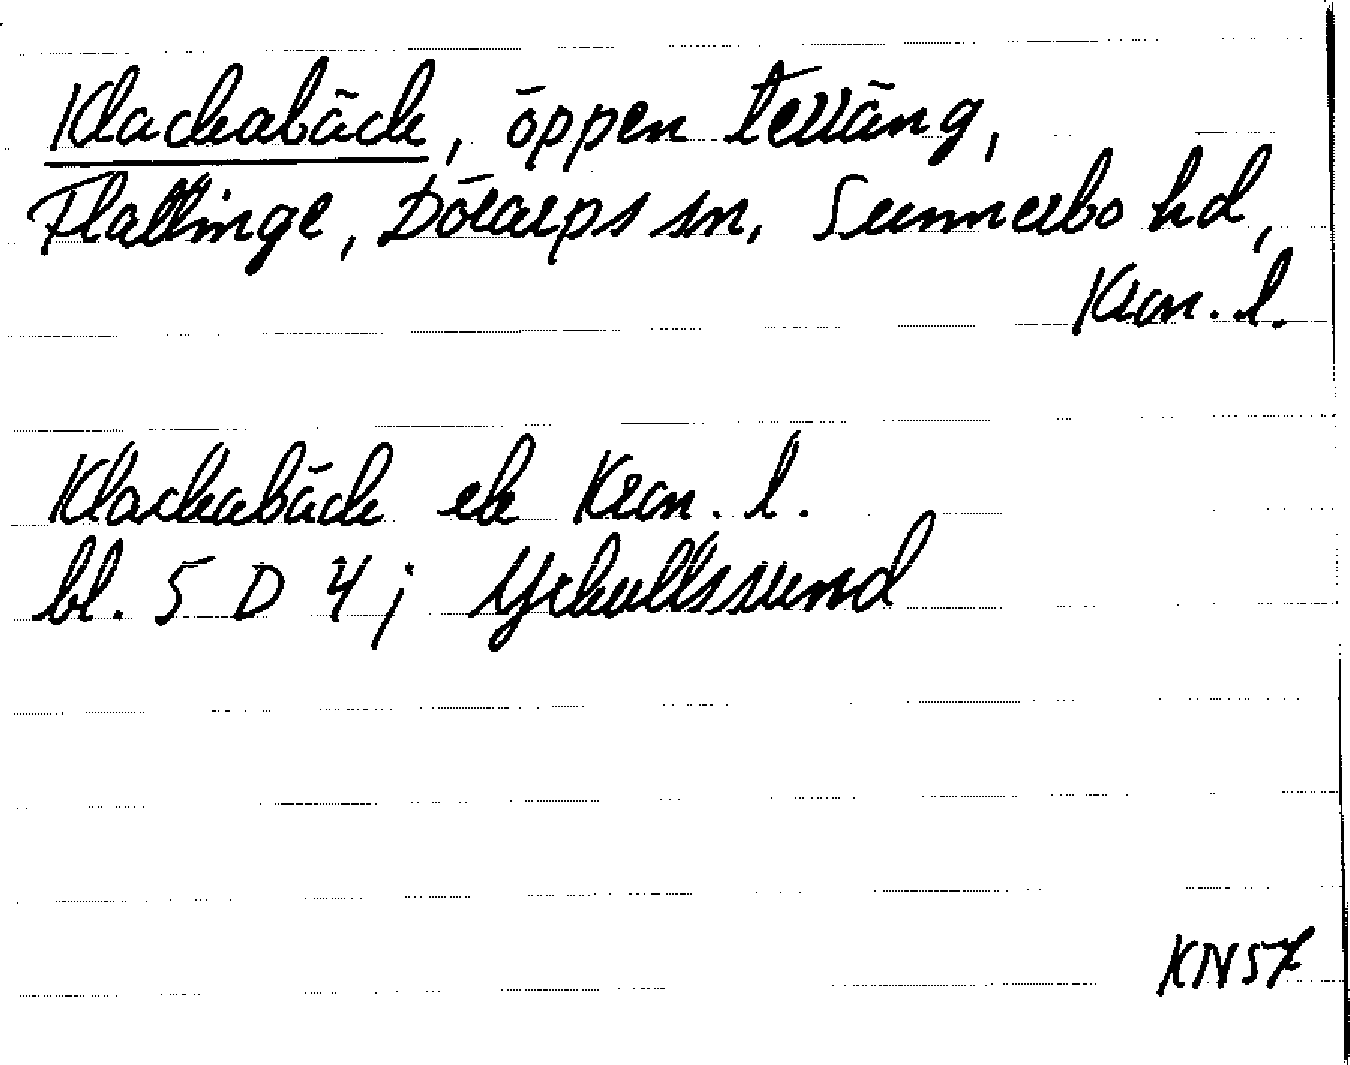 Klackabäck, öppen terräng,
Flattinge, Dörarps sn, Sunnerbo hd,
Kron. l.
Klackabäck ek Kron. l.
bl. 5 D 4; Yxkullssund
KN57